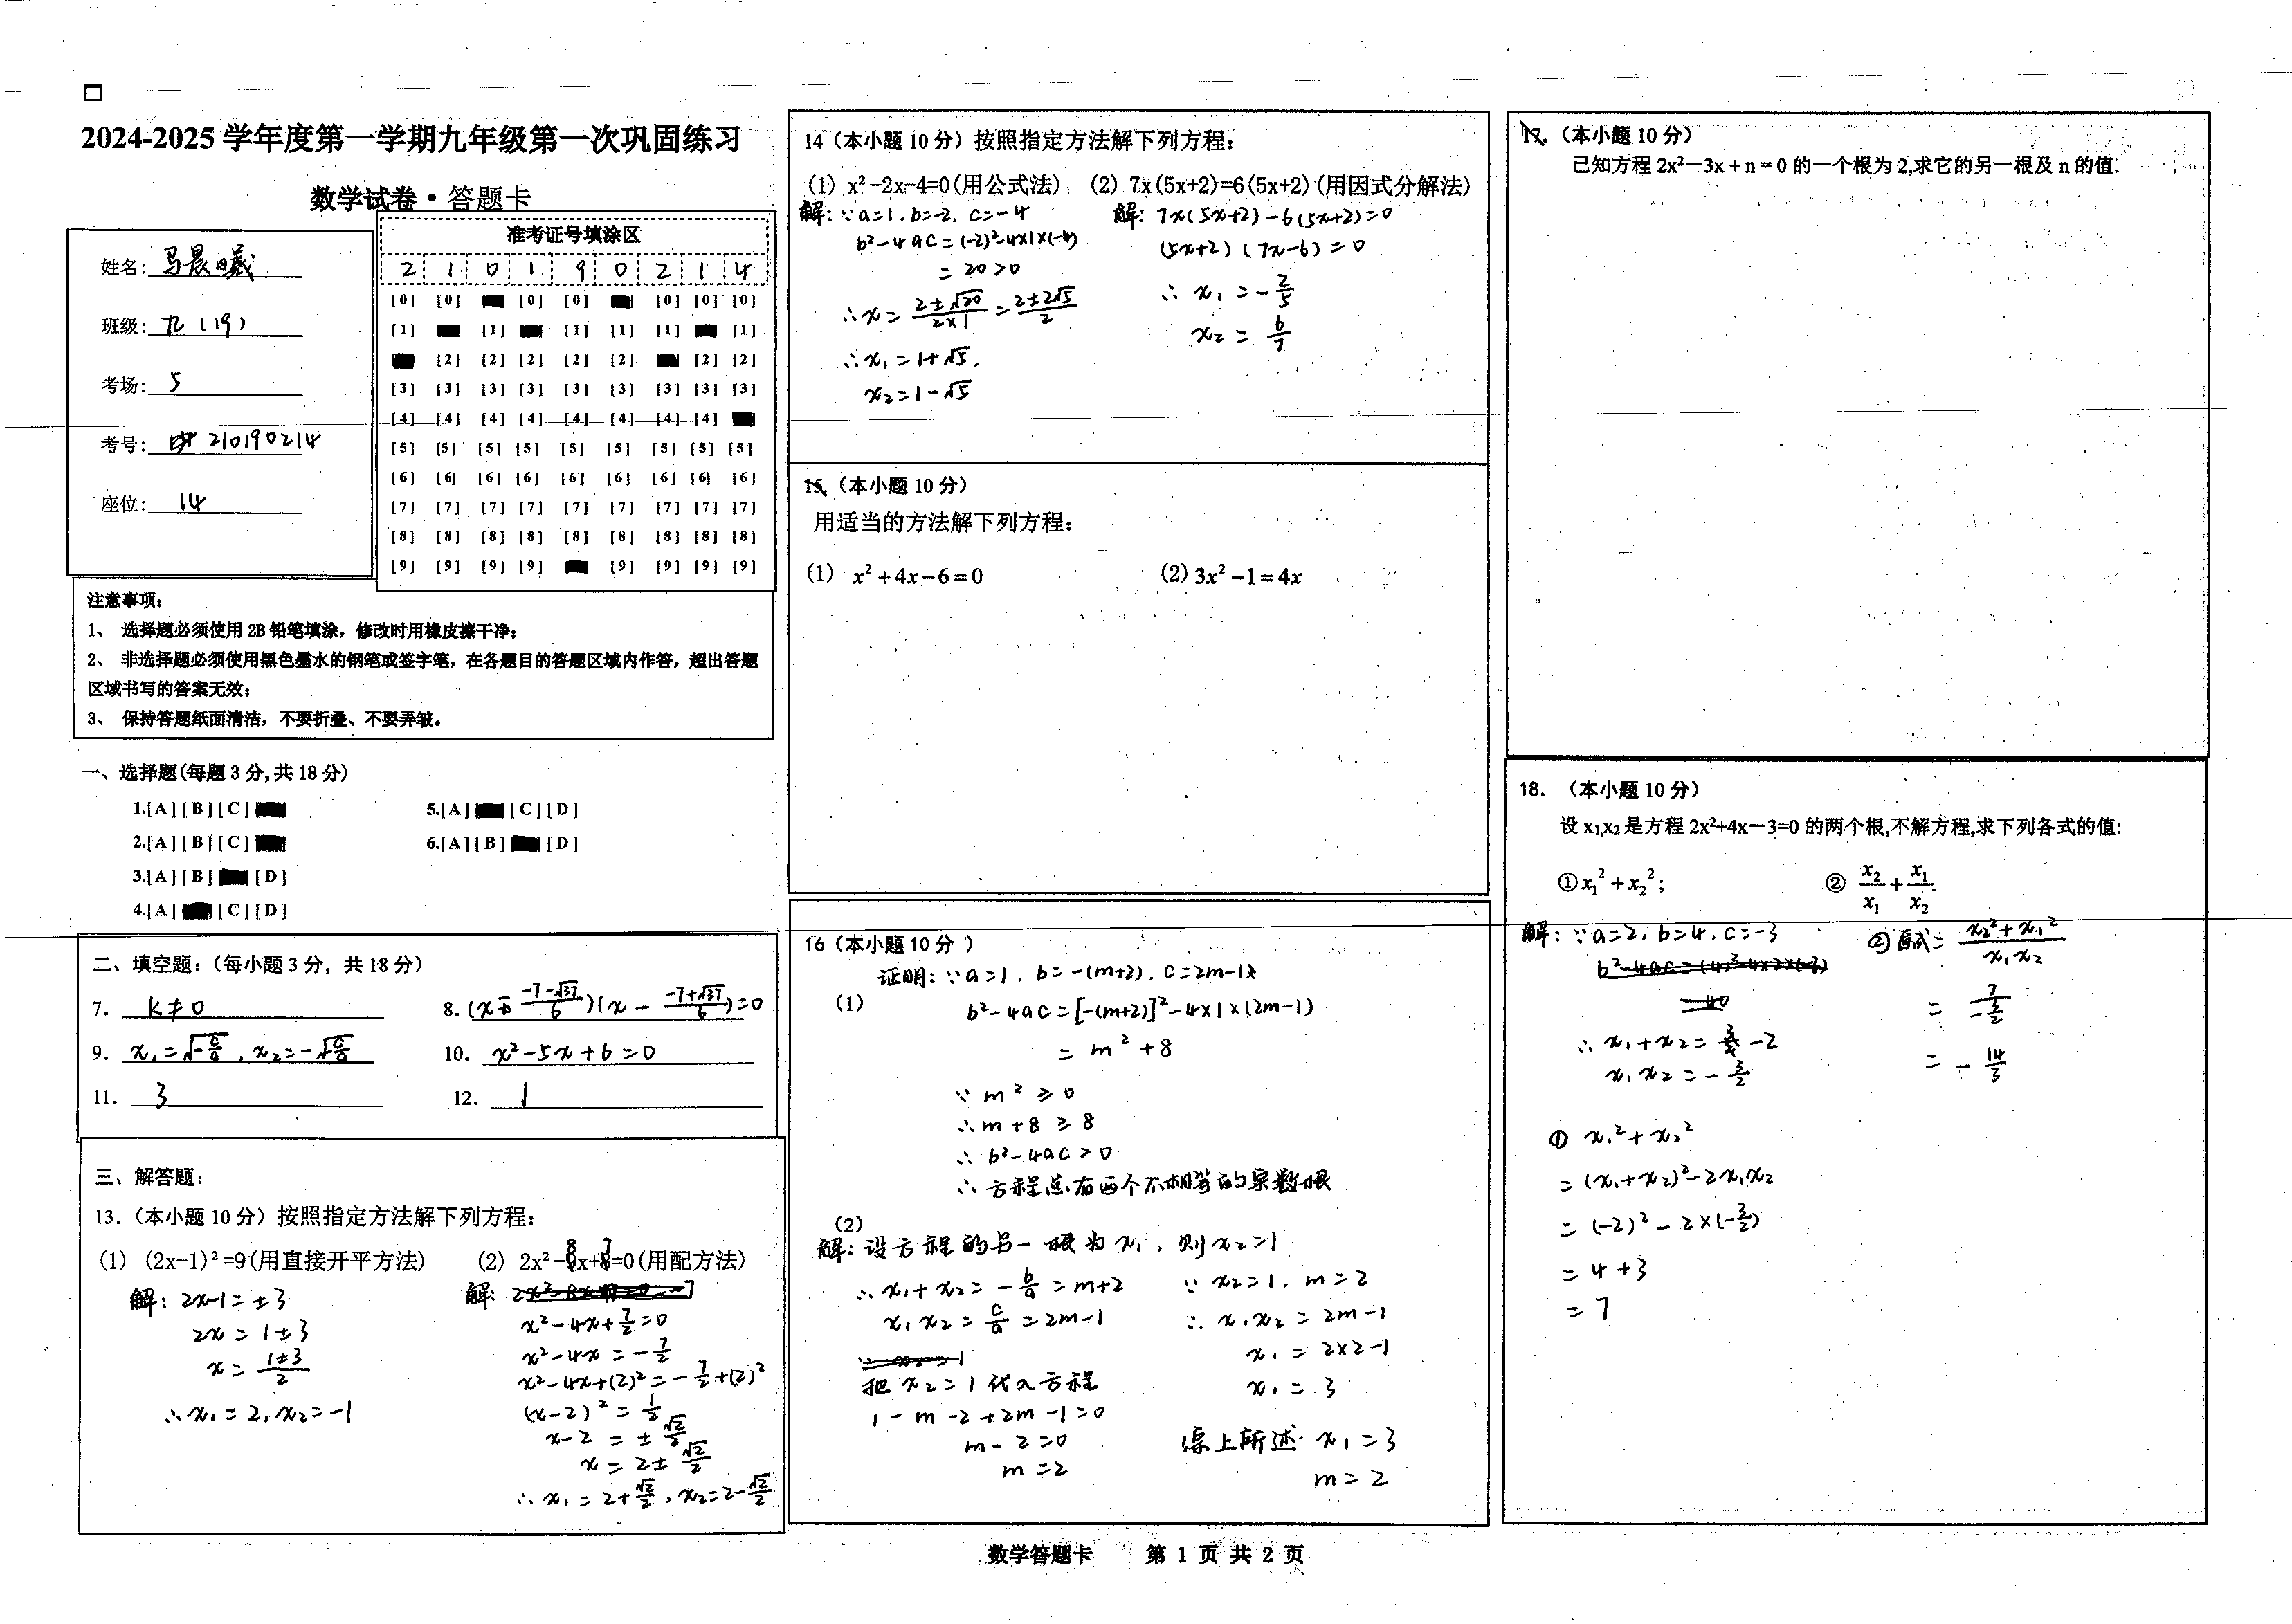 2024-2025 学年度第一学期九年级第一次巩固练习
数学试卷·答题卡
姓名：马晨曦
班级：九（19）
考场：5
考号：210190214
座位：14
准考证号填涂区
2 1 0 1 9 0 2 1 4
[0] [0] [0] [0] [0] [0] [0]
[1] [1] [1] [1] [1] [1]
[2] [2] [2] [2] [2] [2] [2]
[3] [3] [3] [3] [3] [3] [3] [3] [3]
[4] [4] [4] [4] [4] [4] [4] [4]
[5] [5] [5] [5] [5] [5] [5] [5] [5]
[6] [6] [6] [6] [6] [6] [6] [6] [6]
[7] [7] [7] [7] [7] [7] [7] [7] [7]
[8] [8] [8] [8] [8] [8] [8] [8] [8]
[9] [9] [9] [9] [9] [9] [9] [9]
注意事项：
1、 选择题必须使用 2B 铅笔填涂，修改时用橡皮擦干净；
2、 非选择题必须使用黑色墨水的钢笔或签字笔，在各题目的答题区域内作答，超出答题
区域书写的答案无效；
3、 保持答题纸面清洁，不要折叠、不要弄皱。
一、选择题(每题 3 分,共 18 分)
1.[A][B][C] 5.[A] [C][D]
2.[A][B][C] 6.[A][B] [D]
3.[A][B] [D]
4.[A] [C][D]
二、填空题：（每小题 3 分，共 18 分）
7. k≠0 8. (x-(-7-√37)/6)(x-(-7+√37)/6)=0
9. x₁=√(-c/a), x₂=-√(-c/a) 10. x²-5x+6=0
11. 3 12. 1
三、解答题：
13.（本小题 10 分）按照指定方法解下列方程：
(1) (2x-1)²=9(用直接开平方法) (2) 2x²-8x+7=0(用配方法)
解：2x-1=±3
2x=1±3
x=(1±3)/2
∴x₁=2, x₂=-1
解：
x²-4x+7/2=0
x²-4x=-7/2
x²-4x+(2)²=-7/2+(2)²
(x-2)²=1/2
x-2=±√2/2
x=2±√2/2
∴x₁=2+√2/2, x₂=2-√2/2
14（本小题 10 分）按照指定方法解下列方程：
(1) x²-2x-4=0(用公式法) (2) 7x(5x+2)=6(5x+2)(用因式分解法)
解：∵a=1, b=-2, c=-4
b²-4ac=(-2)²-4×1×(-4)
=20>0
∴x=(2±√20)/(2×1)=(2±2√5)/2
∴x₁=1+√5,
x₂=1-√5
解：7x(5x+2)-6(5x+2)=0
(5x+2)(7x-6)=0
∴x₁=-2/5
x₂=6/7
15.（本小题 10 分）
用适当的方法解下列方程：
(1) x²+4x-6=0 (2) 3x²-1=4x
16（本小题 10 分 ）
证明：∵a=1, b=-(m+2), c=2m-1
(1) b²-4ac=[-(m+2)]²-4×1×(2m-1)
=m²+8
∵m²≥0
∴m+8≥8
∴b²-4ac>0
∴方程总有两个不相等的实数根
(2)
解：设方程的另一根为x₁, 则x₂=1
∴x₁+x₂=-b/a=m+2
x₁x₂=c/a=2m-1
把x₂=1代入方程
1-m-2+2m-1=0
m-2=0
m=2
∵x₂=1, m=2
∴x₁x₂=2m-1
x₁=2×2-1
x₁=3
综上所述 x₁=3
m=2
17.（本小题 10 分）
已知方程 2x²-3x+n=0 的一个根为 2,求它的另一根及 n 的值.
18. （本小题 10 分）
设 x₁,x₂ 是方程 2x²+4x-3=0 的两个根,不解方程,求下列各式的值:
①x₁²+x₂²; ② x₂/x₁+x₁/x₂
解：∵a=2, b=4, c=-3
b²-4ac=(4)²-4×2×(-3)
=40
∴x₁+x₂=-2
x₁x₂=-3/2
① x₁²+x₂²
=(x₁+x₂)²-2x₁x₂
=(-2)²-2×(-3/2)
=4+3
=7
②原式=(x₂²+x₁²)/(x₁x₂)
=7/(-3/2)
=-14/3
数学答题卡 第 1 页 共 2 页